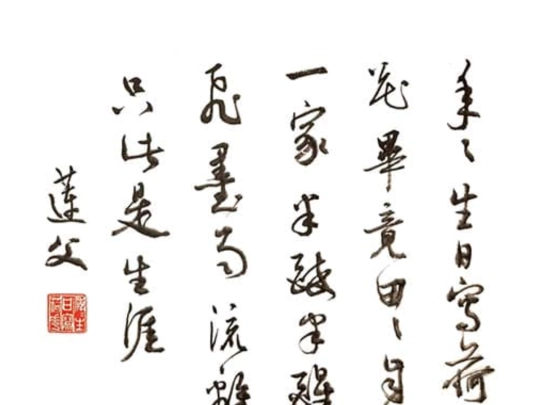 年〻生日寫荷
花畢竟田〻自
一家半醉半醒
飛墨雨流離
只此是生涯
蓮父